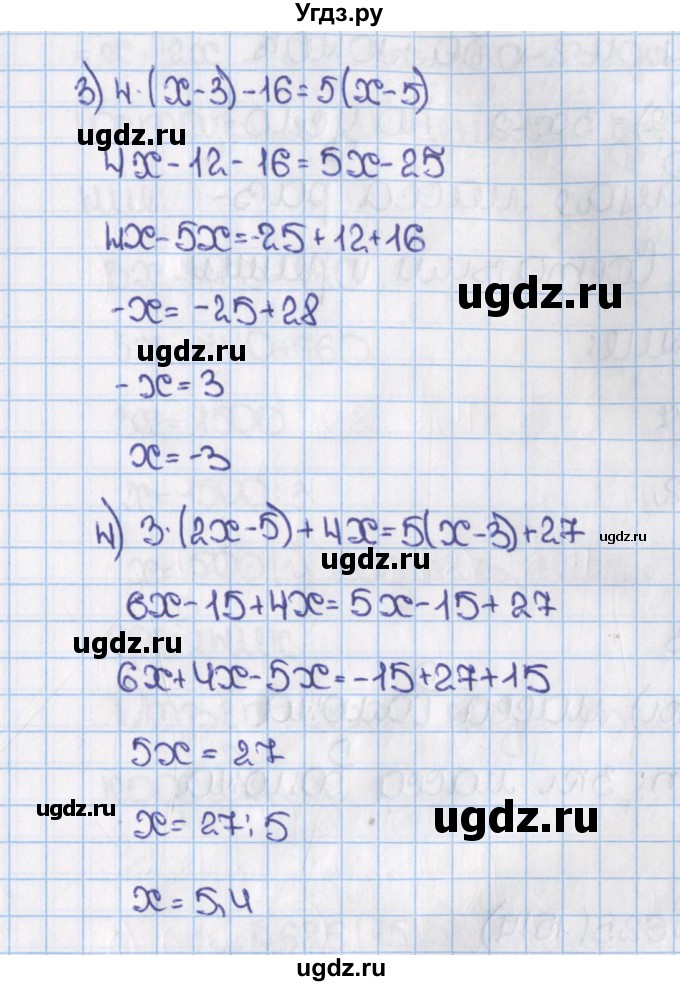 Угдз.ру
3) 4·(x-3)-16=5(x-5)
ugdz.ru
4x-12-16=5x-25
4x-5x=-25+12+16
ugdz.ru
-x=-25+28
ugdz.ru
-x=3
x=-3
4) 3·(2x-5)+4x=5(x-3)+27
ugdz.ru
ugdz.ru
6x-15+4x=5x-15+27
ugdz.ru
6x+4x-5x=-15+27+15
5x=27
ugdz.ru
x=27:5
ugdz.ru
x=5,4
ugdz.ru